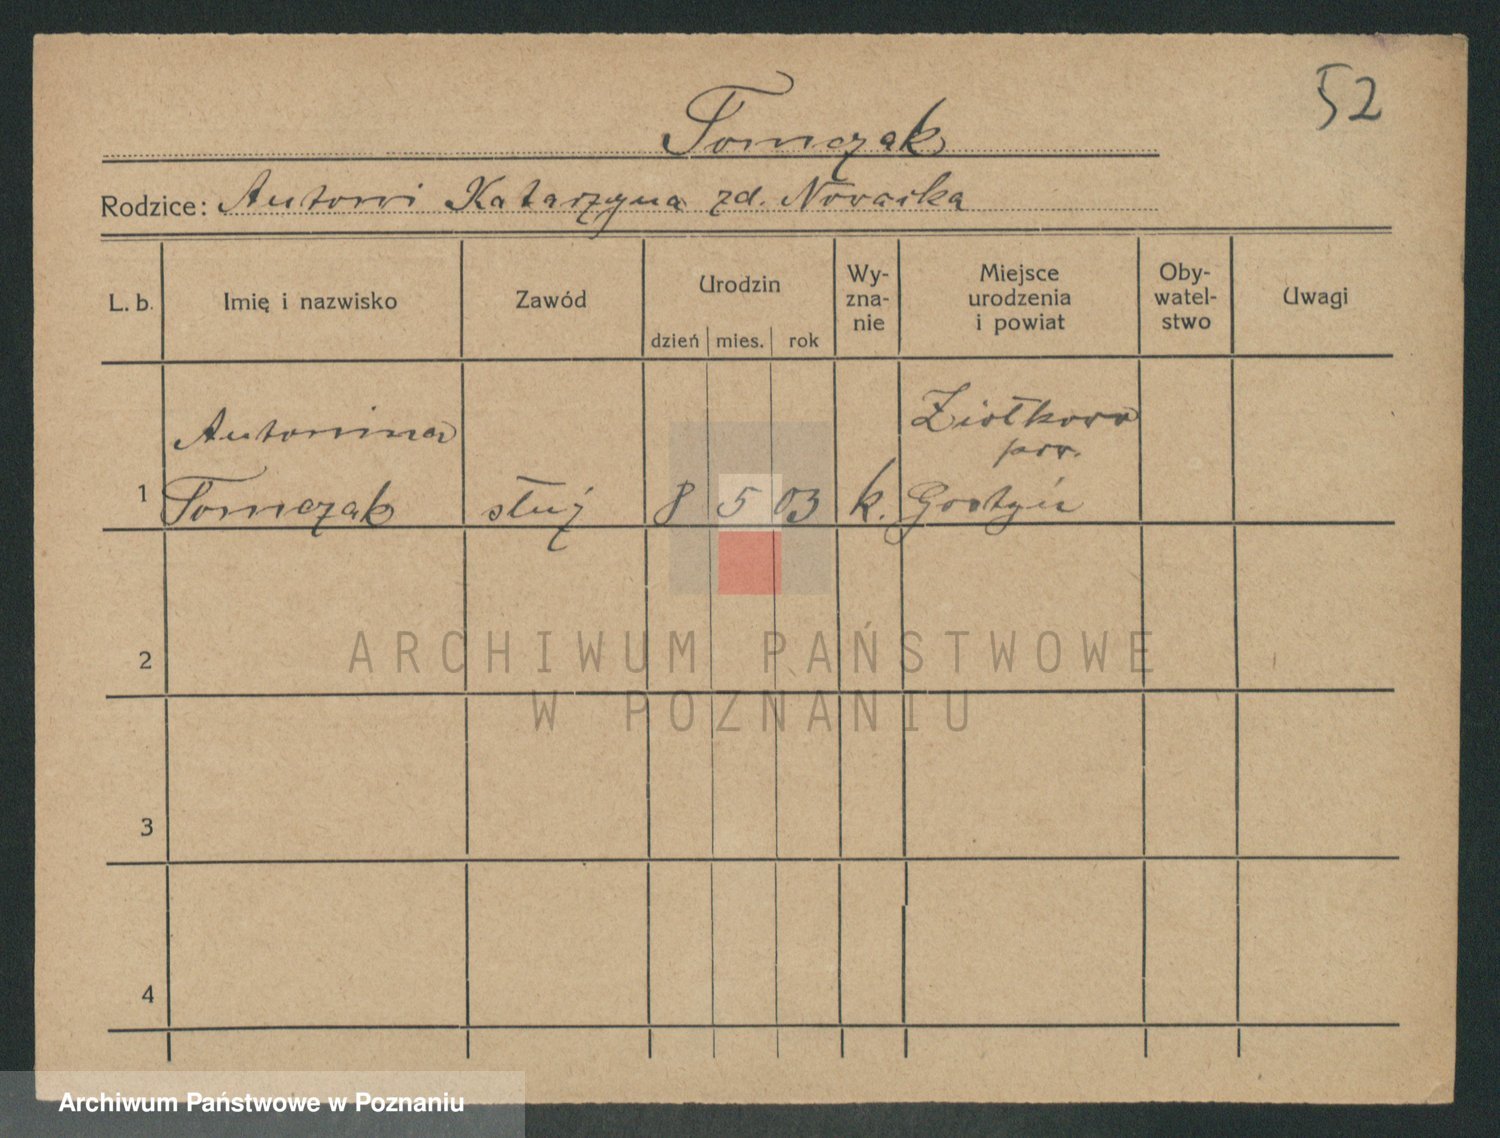 52
Tomczak
Rodzice: Antoni Katarzyna zd. Nowacka
L. b. Imię i nazwisko Zawód Urodzin Wy-zna-nie Miejsce urodzenia i powiat Oby-watel-stwo Uwagi
dzień mies. rok
Antonina Ziółkowo
pow.
1 Tomczak służ 8 5 03 k. Gostyń
2
ARCHIWUM PAŃSTWOWE
W POZNANIU
3
4
Archiwum Państwowe w Poznaniu